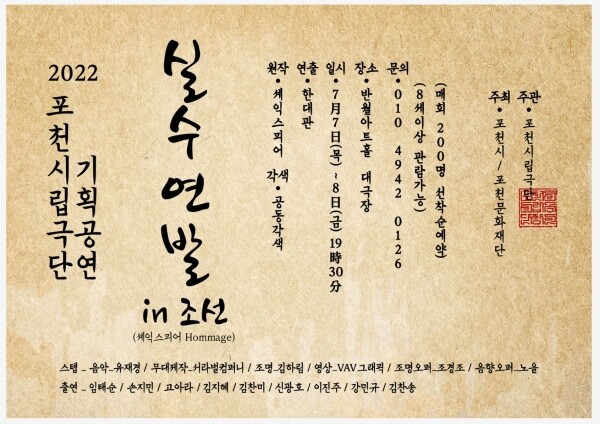 2022
포천시립극단
기획공연
실수연발
in 조선
(셰익스피어 Hommage)
원작 • 셰익스피어 각색 • 공동각색
연출 • 한대관
일시 • 7월 7일(목) ~ 8일(금) 19時 30分
장소 • 반월아트홀 대극장
문의 • 010 4942 0126
(8세이상 관람가능)
(매회 200명 선착순예약)
주최 • 포천시 / 포천문화재단
주관 • 포천시립극단
스텝 _ 음악_유재경 / 무대제작_서라벌컴퍼니 / 조명_김하림 / 영상_VAV그래픽 / 조명오퍼_조경조 / 음향오퍼_노을
출연 _ 임태순 / 손지민 / 고아라 / 김지혜 / 김찬미 / 신광호 / 이진주 / 강민규 / 김찬송